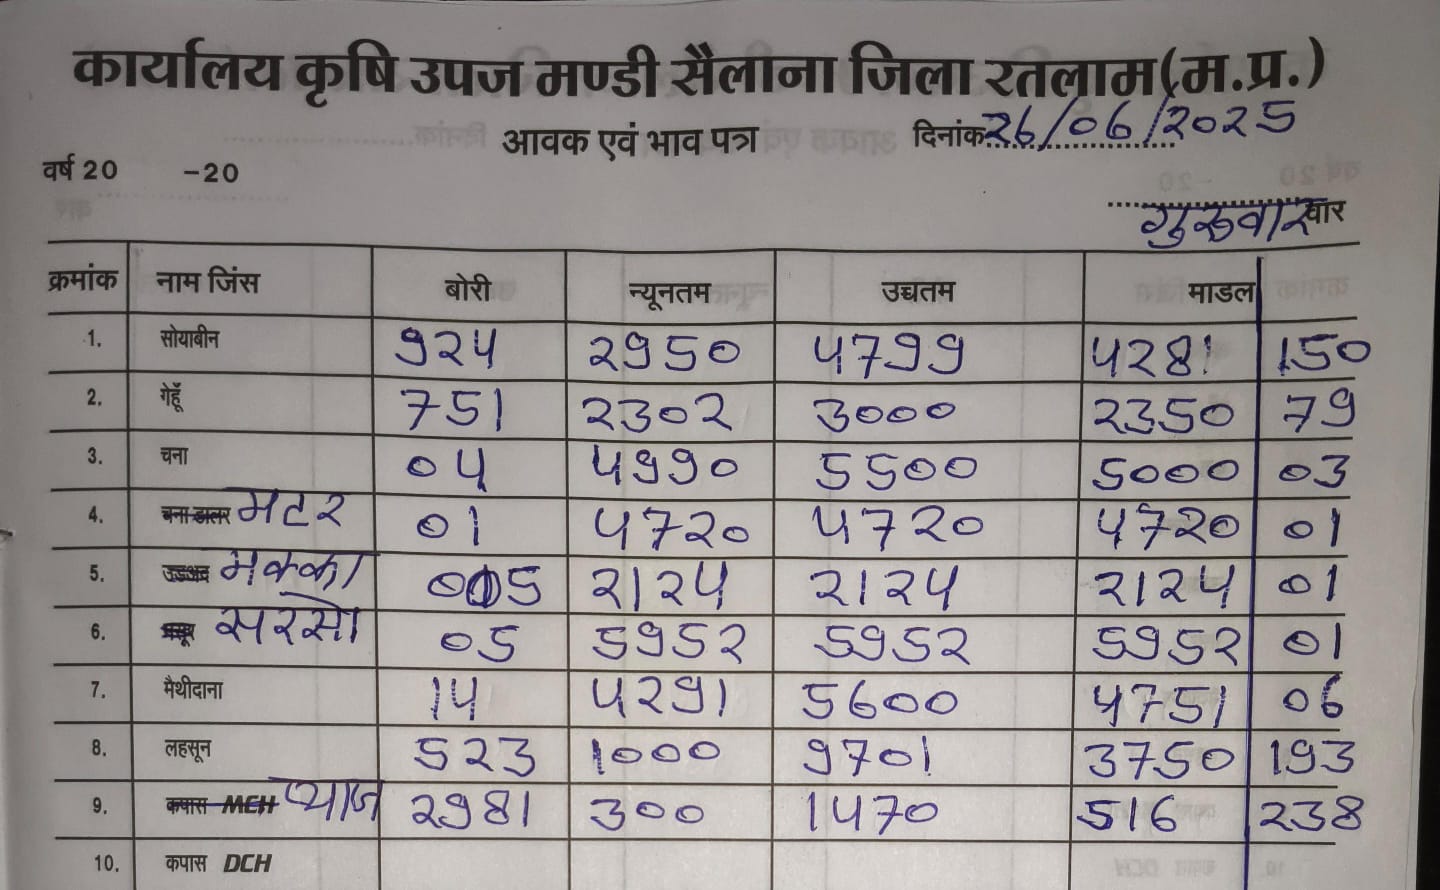 कार्यालय कृषि उपज मण्डी सैलाना जिला रतलाम(म.प्र.)
आवक एवं भाव पत्र दिनांक 26/06/2025
वर्ष 20 -20
गुरुवार वार
क्रमांक नाम जिंस बोरी न्यूनतम उच्चतम माडल
1. सोयाबीन 924 2950 4799 4281 150
2. गेहूँ 751 2302 3000 2350 79
3. चना 04 4990 5500 5000 03
4. चना डालर मटर 01 4720 4720 4720 01
5. मक्का 05 2124 2124 2124 01
6. सरसो 05 5952 5952 5952 01
7. मैथीदाना 14 4291 5600 4751 06
8. लहसून 523 1000 9701 3750 193
9. कपास MCH प्याज 2981 300 1470 516 238
10. कपास DCH